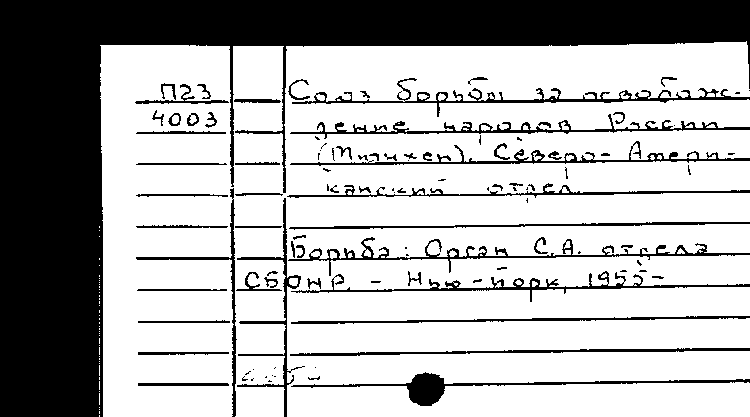 П23
4003
Союз борьбы за освобож-
дение народов России
(Мюнхен). Северо-Амери-
канский отдел.
Борьба: Орган С.А. отдела
СБОНР. - Нью-Йорк, 1955-